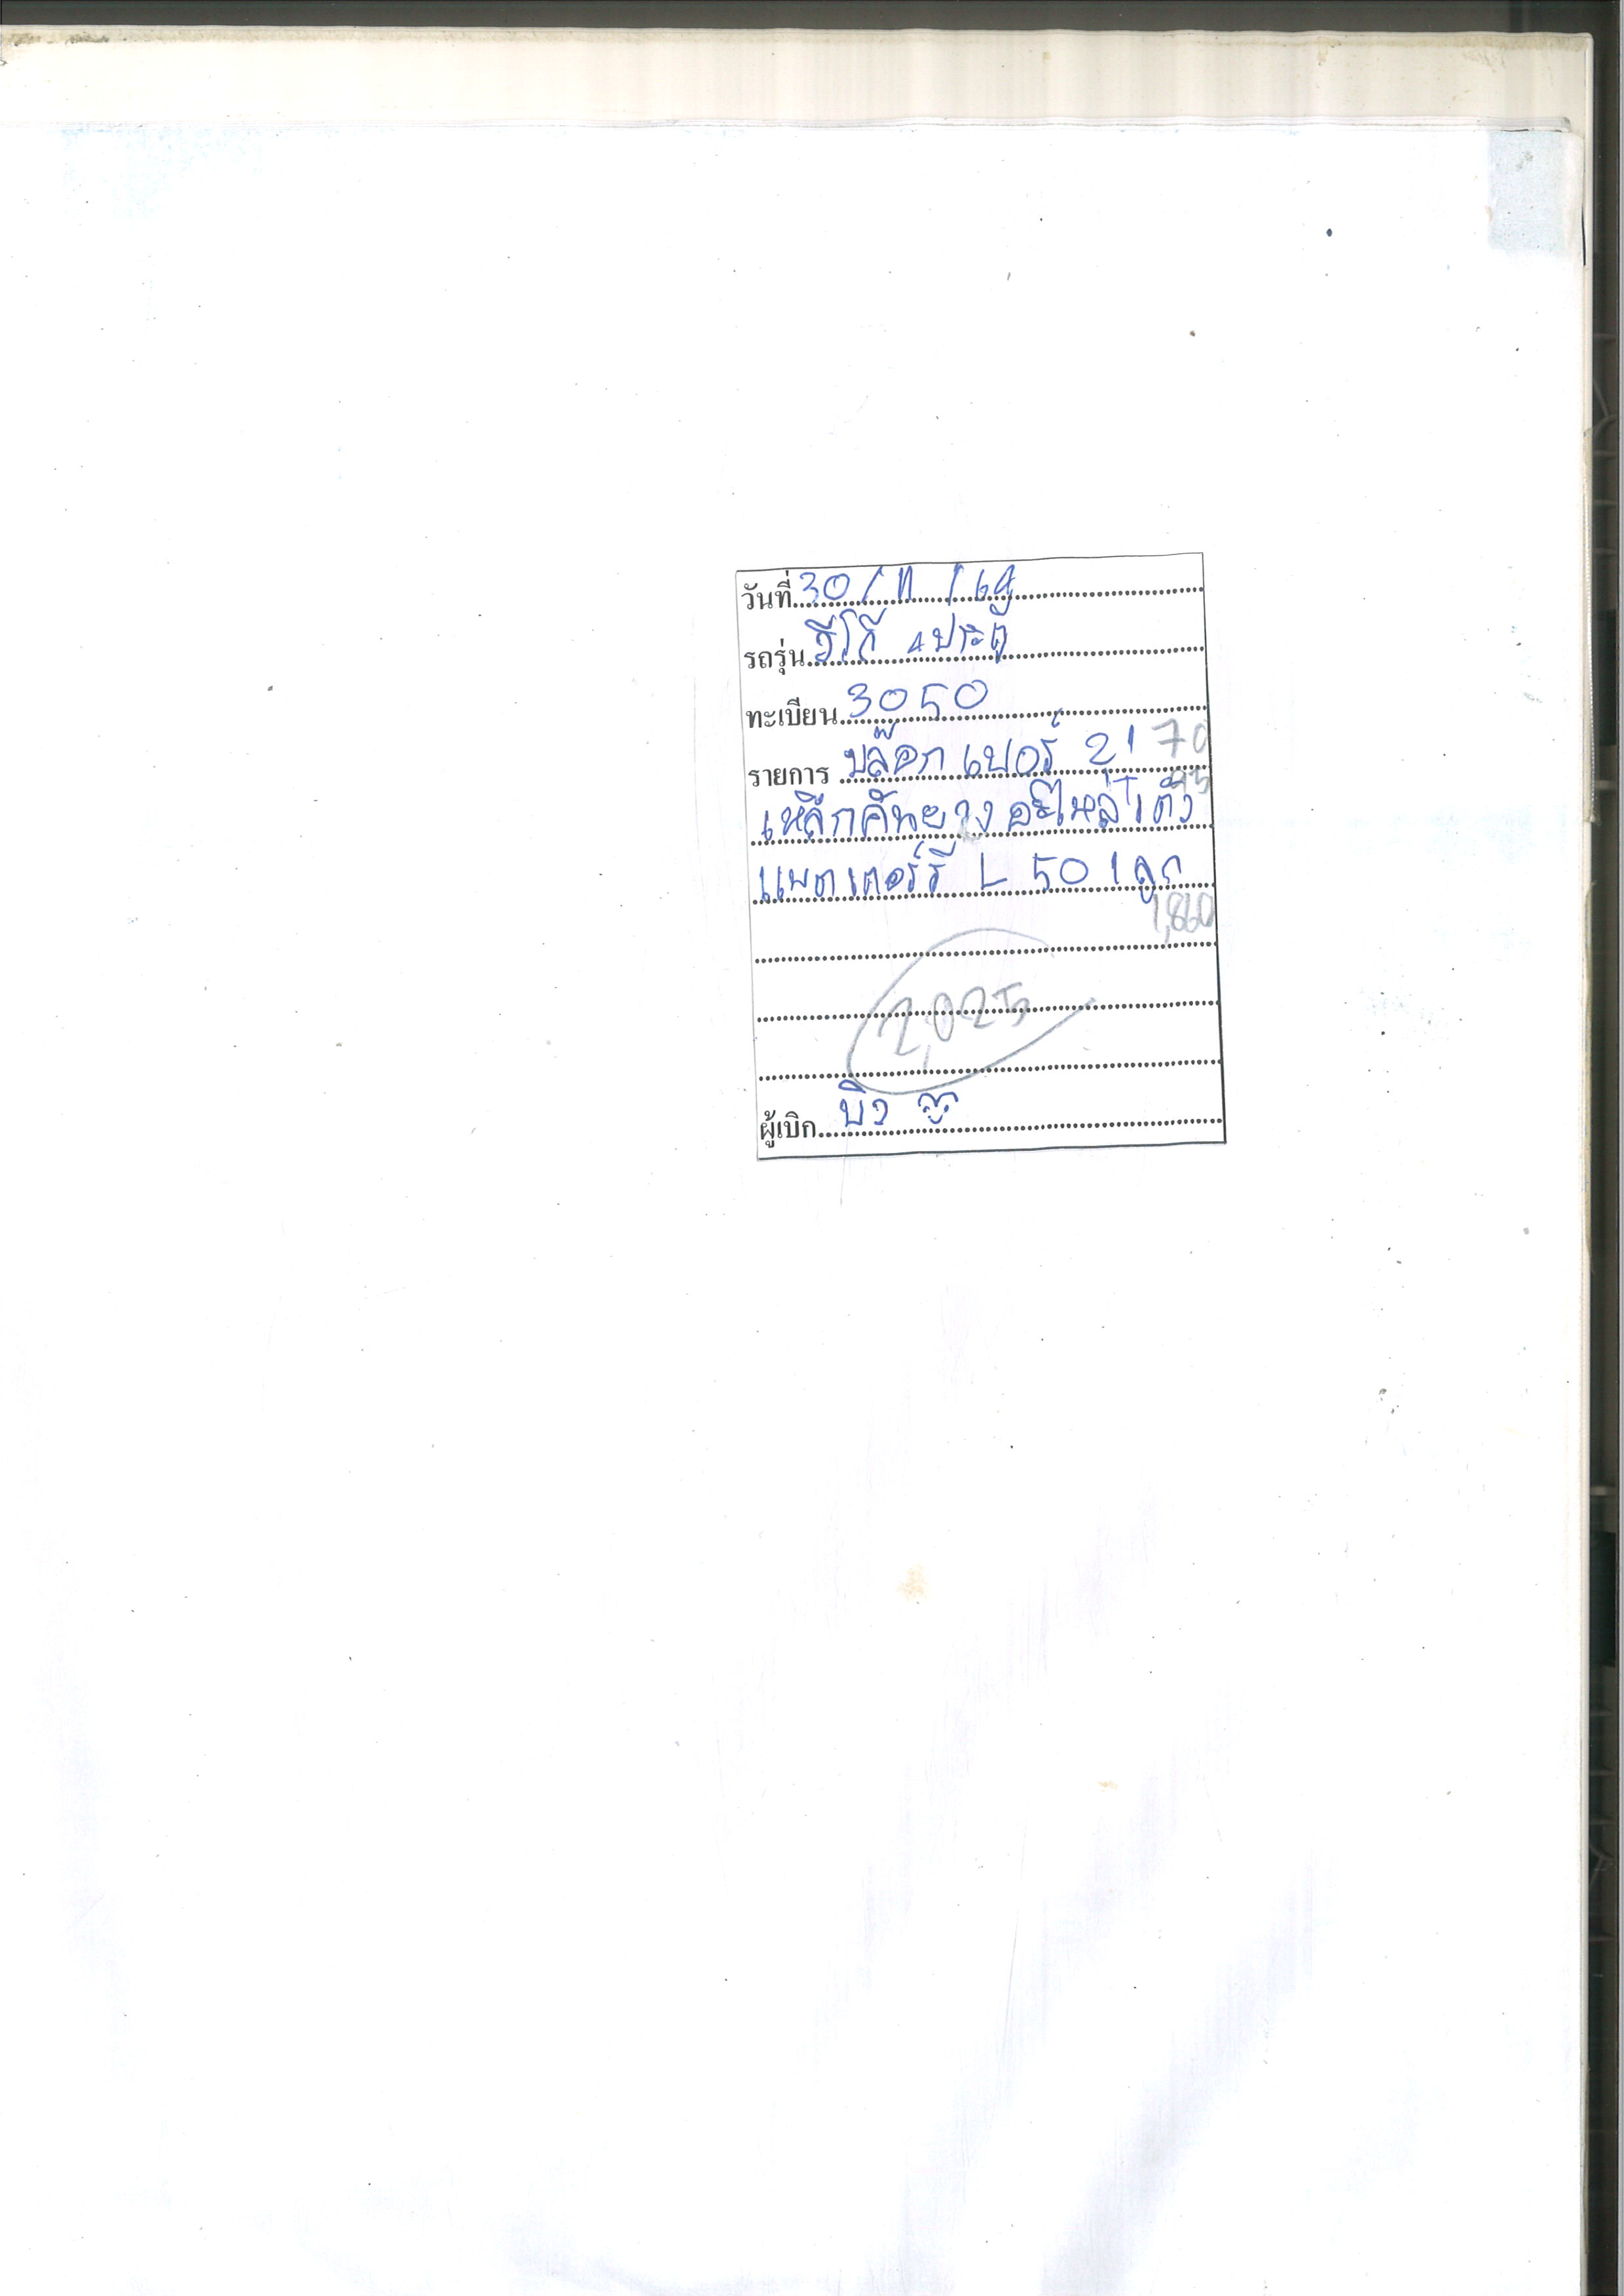 วันที่ 30/11/64
รถรุ่น วีโก้ 4ประตู
ทะเบียน 3050
รายการ บล๊อก เบอร์ 21 70
เหล็กคันยาง อะไหล่ 1 ตัว 95
แบตเตอร์รี่ L 50 1 ลูก
1,860
2,025
ผู้เบิก บิว